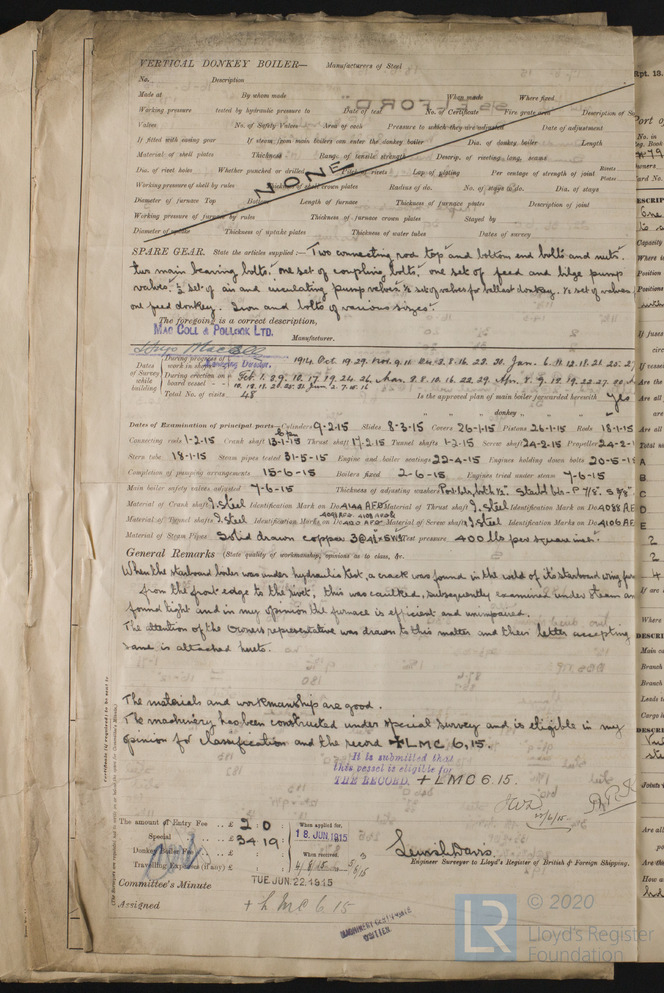 VERTICAL DONKEY BOILER— Manufacturers of Steel
No. Description
Made at By whom made When made Where fixed
Working pressure tested by hydraulic pressure to Date of test No. of Certificate Fire grate area Description of
Valves No. of Safety Valves Area of each Pressure to which they are adjusted Date of adjustment
If fitted with easing gear If steam from main boilers can enter the donkey boiler Dia. of donkey boiler Length
Material of shell plates Thickness Range of tensile strength Descrip. of riveting long. seams
Dia. of rivet holes Whether punched or drilled Pitch of rivets Lap of plating Per centage of strength of joint Rivets Plates
Working pressure of shell by rules Thickness of shell crown plates Radius of do. No. of stays to do. Dia. of stays
NONE
Diameter of furnace Top Bottom Length of furnace Thickness of furnace plates Description of joint
Working pressure of furnace by rules Thickness of furnace crown plates Stayed by
Diameter of uptake Thickness of uptake plates Thickness of water tubes Dates of survey
SPARE GEAR. State the articles supplied:— Two connecting rod top and bottom end bolts and nuts.
two main bearing bolts. one set of coupling bolts. one set of feed and bilge pump
valves. ½ set of air and circulating pump valves. ½ set of valves for ballast donkey. ½ set of valves
one feed donkey. Iron and bolts of various sizes.
The foregoing is a correct description,
MAC COLL & POLLOCK LTD. Manufacturer.
Hugo MacColl
Managing Director.
Dates of Survey while building
During progress of work in shops 1914. Oct. 19. 29. Nov. 9. 11. Dec. 3. 8. 16. 22. 31. Jan. 6. 11. 12. 18. 21. 25. 27
During erection on board vessel Feb. 1. 8. 9. 10. 17. 19. 24. 26. Mar. 3. 8. 10. 16. 22. 29. Apr. 8. 9. 12. 19. 22. 27.
Total No. of visits 48
Is the approved plan of main boiler forwarded herewith yes
" " " donkey " " "
Dates of Examination of principal parts—Cylinders 9-2-15 Slides 8-3-15 Covers 26-1-15 Pistons 26-1-15 Rods 18-1-15
Connecting rods 1-2-15 Crank shaft 13-1-15 Thrust shaft 17.2.15 Tunnel shafts 1-2-15 Screw shaft 24-2-15 Propeller 24-2-1
Stern tube 18-1-15 Steam pipes tested 31-5-15 Engine and boiler seatings 22-4-15 Engines holding down bolts 20-5-15
Completion of pumping arrangements 15-6-15 Boilers fixed 2-6-15 Engines tried under steam 7-6-15
Main boiler safety valves adjusted 7-6-15 Thickness of adjusting washers
Material of Crank shaft I. Steel Identification Mark on Do. 4144 AFD Material of Thrust shaft I. Steel Identification Mark on Do. 4088 AF
Material of Tunnel shafts I. Steel Identification Marks on Do. Material of Screw shafts I Steel Identification Marks on Do. 4106 AF
Material of Steam Pipes Solid drawn copper Test pressure 400 lbs per square inch.
General Remarks (State quality of workmanship, opinions as to class, &c.
When the starboard boiler was under hydraulic test, a crack was found in the weld of its starboard wing fur
from the front edge to the rivet, this was caulked, subsequently examined under steam an
found tight and in my opinion the furnace is efficient and unimpaired.
The attention of the Owners representative was drawn to this matter and their letter accepting
same is attached hereto.
The materials and workmanship are good.
The machinery has been constructed under special survey and is eligible in my
opinion for classification and the record +LMC 6,15.
It is submitted that
this vessel is eligible for
THE RECORD. + LMC 6.15.
The amount of Entry Fee .. £ 2 : 0
Special .. £ 34 : 19 :
Donkey Boiler Fee .. £
Travelling Expenses (if any) £
When applied for,
18 JUN. 1915
When received,
Lewis L. Davis.
Engineer Surveyor to Lloyd's Register of British & Foreign Shipping.
Committee's Minute TUE. JUN. 22. 1915
Assigned + L M C 6 15
MACHINERY CERTIFICATE
WRITTEN.
Certificate (if required) to be sent to
Rpt. 13.
Port of
No. in
Reg. Book
Capacity
Where
Position
Position
If fuses
Are the
Are all
Total
A
B
C
D
E
Where
Main
Branch
Branch
Leads
Cargo
Are all
© 2020
LR
Lloyd's Register
Foundation